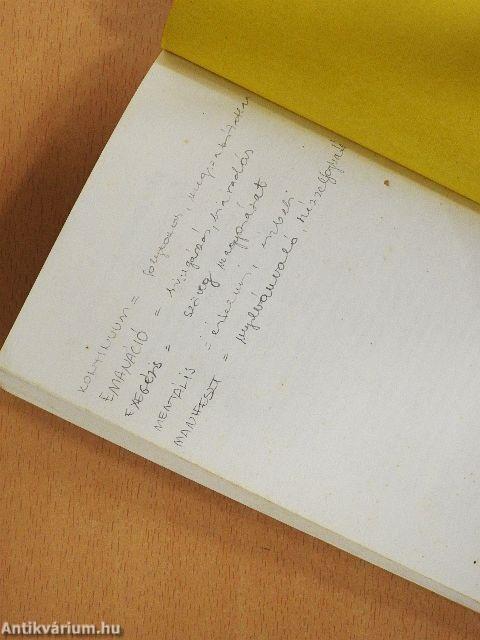 KONTINUUM = folyamatos, megszakítatlan
EMANÁCIÓ = kisugárzás, kiáradás
EXEGÉZIS = szöveg magyarázat
MENTÁLIS = értelmi, észbeli
MANIFESZT = nyilvánvaló, kézzelfogható
Antikvárium.hu